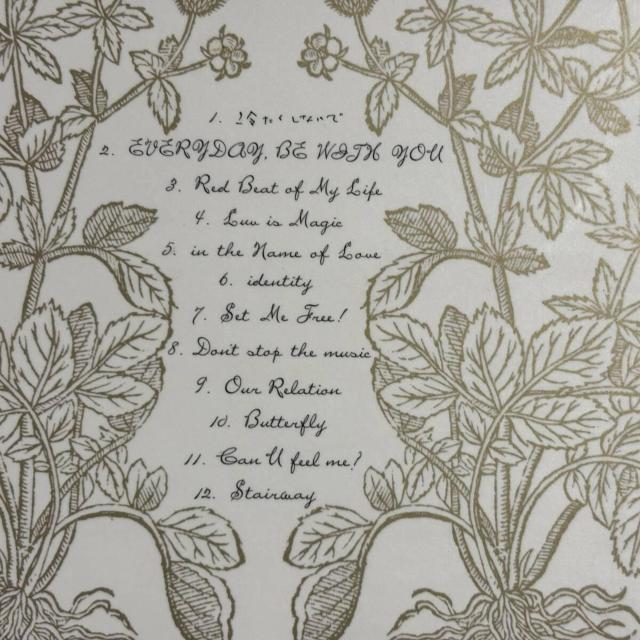 1.
2. EVERYDAY, BE WITH YOU
3. Red Beat of My Life
4. Luv is Magic
5. in the Name of Love
6. identity
7. Set Me Free!
8. Don't stop the music
9. Our Relation
10. Butterfly
11. Can U feel me?
12. Stairway